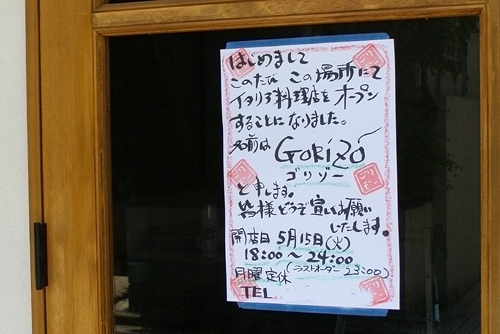 はじめまして
このたび この場所にて
イタリア料理店を オープン
することに なりました。
名前は GORIZO
ゴリゾー
と申します。
皆様どうぞ宜しくお願い
いたします。
開店日 5月15日(火)
18:00～24:00
月曜定休 (ラストオーダー 23:00)
TEL